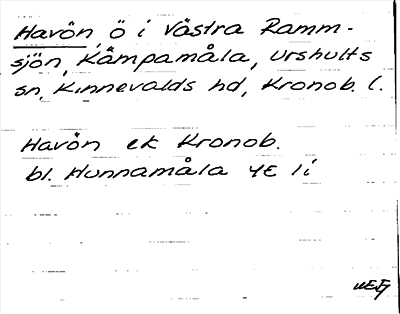 Havön, ö i västra Ramm-
sjön, Kämpamåla, Urshults
sn, Kinnevalds hd, Kronob. l.
Havön ek Kronob.
bl. Hunnamåla 4E 1i